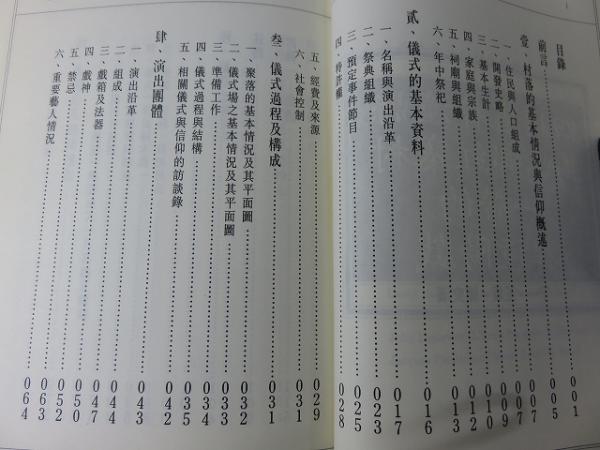 目錄
前言 001
壹、村落的基本情況與信仰概述 005
一、住民與人口組成 007
二、開發史略 007
三、基本生計 009
四、家庭與宗族 010
五、祠廟與組織 012
六、年中祭祀 013
貳、儀式的基本資料 016
一、名稱與演出沿革 017
二、祭典組織 023
三、預定事件節目 025
四、 028
五、經費及來源 029
六、社會控制 031
叁、儀式過程及構成 031
一、聚落的基本情況及其平面圖 032
二、儀式場之基本情況及其平面圖 033
三、準備工作 034
四、儀式過程與結構 035
五、相關儀式與信仰的訪談錄 042
肆、演出團體 043
一、演出沿革 044
二、組成 047
三、戲箱及法器 050
四、戲神 052
五、禁忌 063
六、重要藝人情況 064